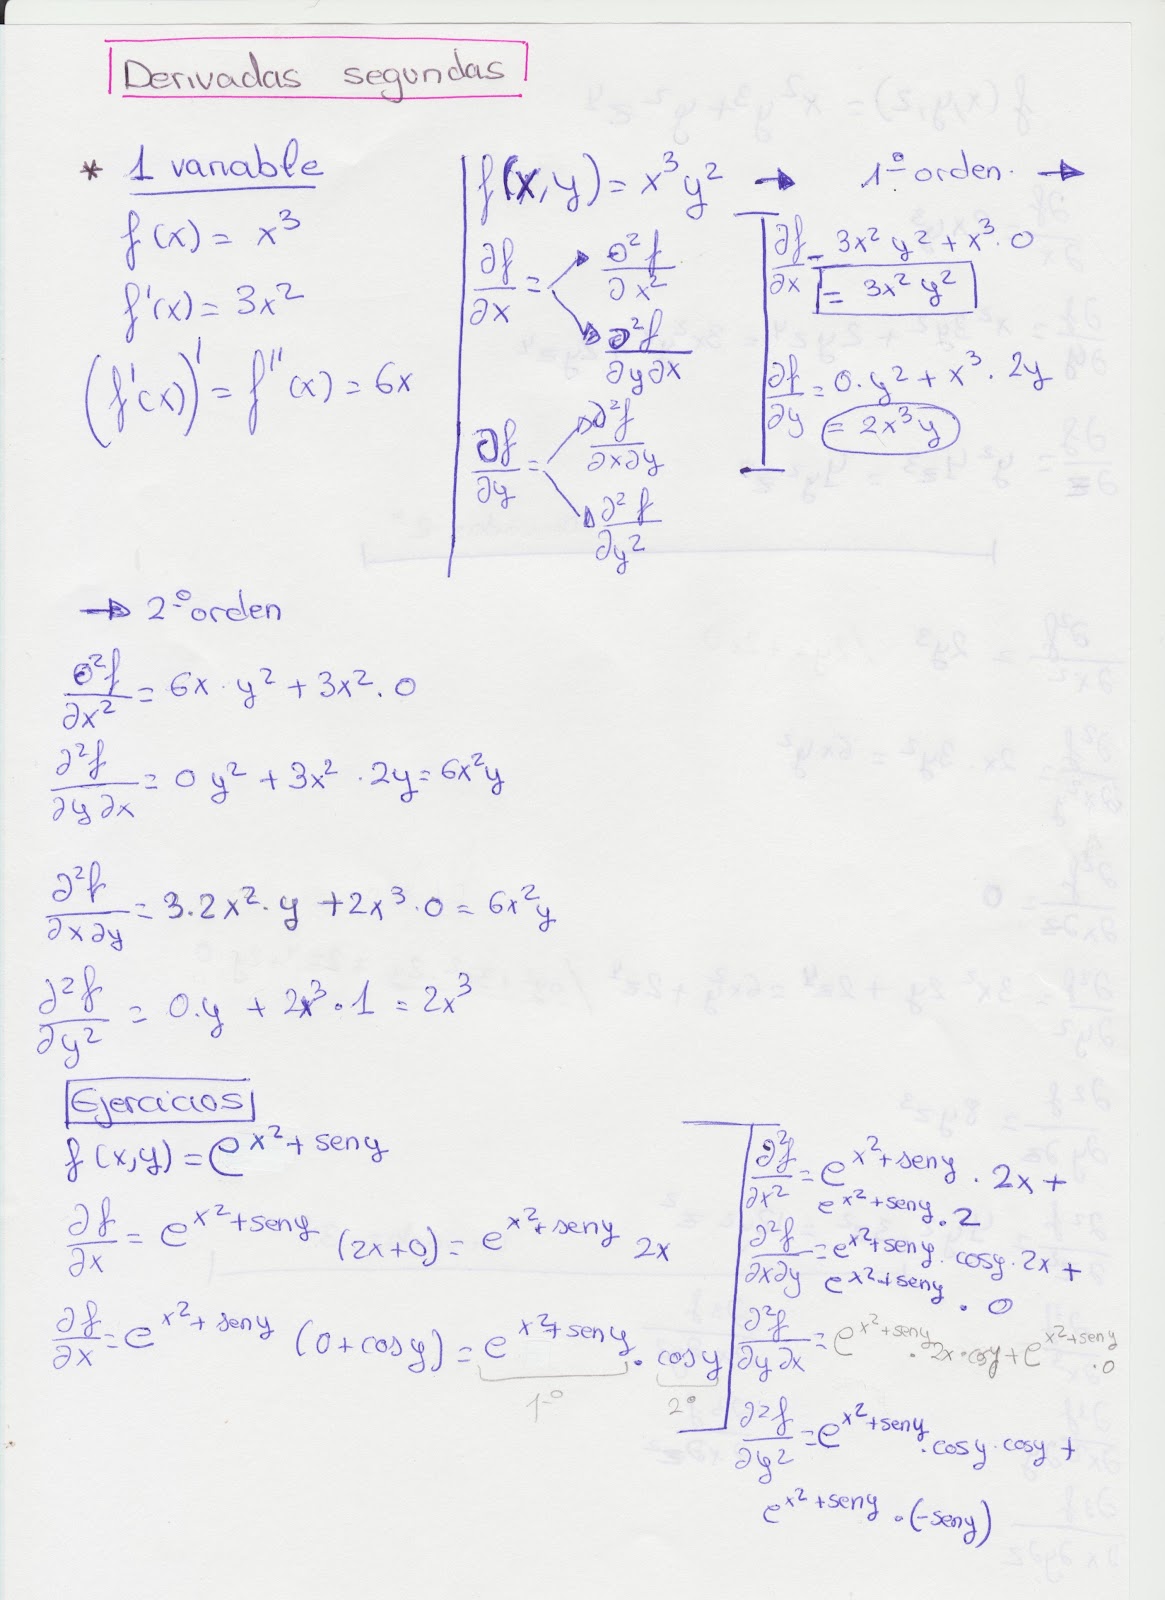 Derivadas segundas
* 1 variable
f(x) = x³
f'(x) = 3x²
(f'(x))' = f''(x) = 6x
f(x,y) = x³y² → 1º orden. →
∂f/∂x = ∂²f/∂x²
∂²f/∂y∂x
∂f/∂y = ∂²f/∂x∂y
∂²f/∂y²
∂f/∂x = 3x² y² + x³ · 0
= 3x² y²
∂f/∂y = 0 · y² + x³ · 2y
= 2x³y
→ 2º orden
∂²f/∂x² = 6x · y² + 3x² · 0
∂²f/∂y∂x = 0 y² + 3x² · 2y = 6x²y
∂²f/∂x∂y = 3·2x² · y + 2x³ · 0 = 6x²y
∂²f/∂y² = 0·y + 2x³ · 1 = 2x³
Ejercicios
f(x,y) = e^(x²+seny)
∂f/∂x = e^(x²+seny) (2x+0) = e^(x²+seny) 2x
∂f/∂x = e^(x²+seny) (0+cosy) = e^(x²+seny) · cosy
1º 2º
∂²f/∂x² = e^(x²+seny) · 2x +
e^(x²+seny) · 2
∂²f/∂x∂y = e^(x²+seny) · cosy · 2x +
e^(x²+seny) · 0
∂²f/∂y∂x = e^(x²+seny) · 2x · cosy + e^(x²+seny) · 0
∂²f/∂y² = e^(x²+seny) · cosy · cosy +
e^(x²+seny) · (-seny)